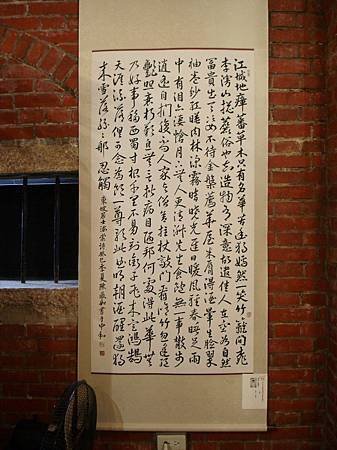 江城地瘴蕃草木只有名華苦幽獨嫣然一笑竹籬間桃
李漫山揔麤俗也知造物有深意故遣佳人在空谷自然
富貴出天姿不待金槃薦華屋朱脣得酒暈生臉翠
袖卷紗紅映肉林深霧暗曉光遲日暖風輕春睡足雨
中有淚亦悽愴月下無人更清淑先生食飽無一事散步
逍遙自捫腹不問人家與僧舍拄杖敲門看修竹忽逢絕
豔照衰朽歎息無言揩病目陋邦何處得此華無
乃好事移西蜀寸根千里不易到銜子飛來定鴻鵠
天涯流落俱可念為飲一尊歌此曲明朝酒醒還獨
來雪落紛紛那忍觸 東坡居士海棠詩 季夏陳書于中和